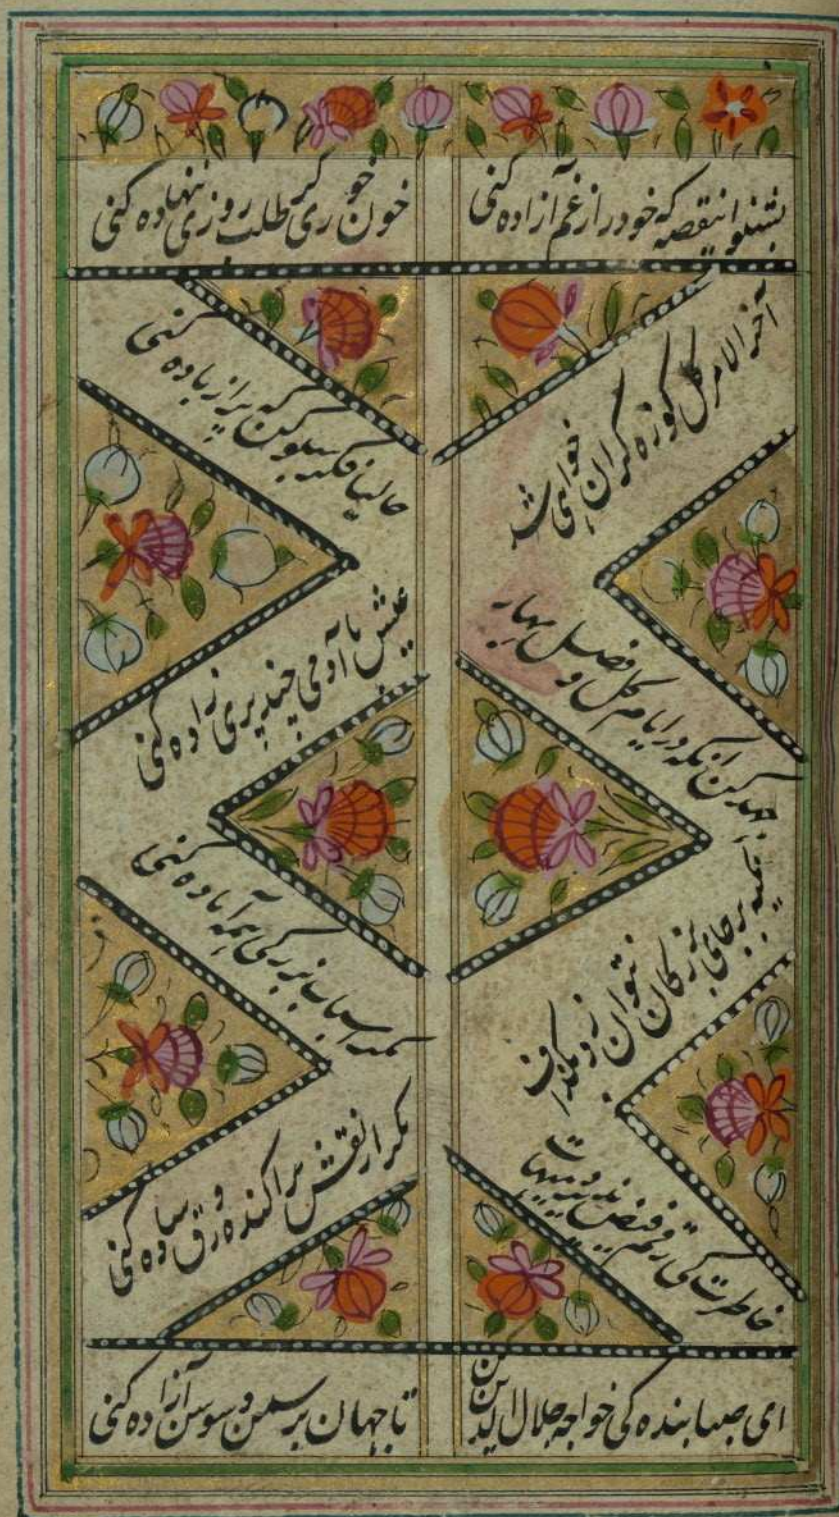 بشنو اینقصه که خود را ز غم آزاده کنی
خون خوری گر طلب روزی ننهاده کنی
آخر الامر گل کوزه گران خواهی شد
حالیا فکر سبو کن که پر از باده کنی
جهد کن انکه در ایام گل و فصل بهار
عیش با آدمی چند پری زاده کنی
تکیه بر جای بزرگان نتوان زد بگزاف
مگر اسباب بزرگی همه آماده کنی
خاطرت کی رقم فیض پذیرد هیهات
مگر از نقش پراکنده ورق ساده کنی
ای صبا بنده کی خواجه جلال الدین کن
تا جهان پر سمن و سوسن آزاده کنی